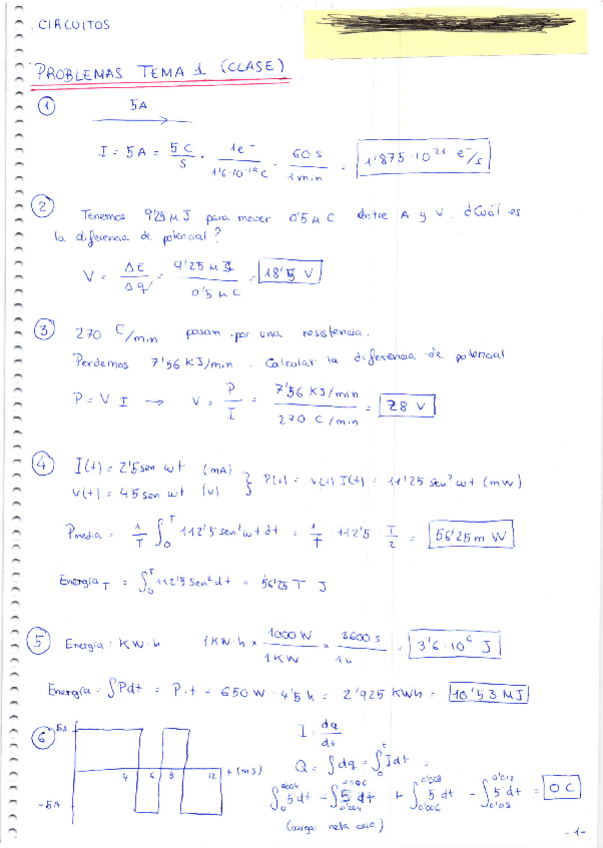 CIRCUITOS
PROBLEMAS TEMA 1 (CLASE)
① 5A
I = 5A = 5 C / S · 1e⁻ / 1'6·10⁻¹⁹ C · 60 s / 1 min = 1'875·10²¹ e⁻/s
② Tenemos 9'25 μJ para mover 0'5 μC entre A y V. ¿Cuál es
la diferencia de potencial?
V = ΔE / Δq = 9'25 μJ / 0'5 μC = 18'5 V
③ 270 C/min pasan por una resistencia.
Perdemos 7'56 KJ/min. Calcular la diferencia de potencial
P = V I → V = P / I = 7'56 KJ/min / 270 C/min = 28 V
④ I(t) = 2'5 sen ωt (mA)
V(t) = 45 sen ωt (V) } P(t) = V(t) I(t) = 11'25 sen² ωt (mW)
Pmedia = 1/T ∫₀ᵀ 112'5 sen² ωt dt = 1/T · 112'5 · T/2 = 56'25 m W
Energía T = ∫₀ᵀ 112'5 sen² dt = 56'25 T J
⑤ Energía = KW·h 1KW·h × 1000 W / 1 KW × 3600 s / 1h = 3'6·10⁶ J
Energía = ∫Pdt = P·t = 650 W · 4'5 h = 2'925 KWh = 10'53 MJ
⑥ 5A I = dq / dt
4 6 8 12 t (ms) Q = ∫dq = ∫₀ᵀ I dt =
-5A ∫₀^0'004 5 dt - ∫_0'004^0'006 5 dt + ∫_0'006^0'008 5 dt - ∫_0'08^0'012 5 dt = 0 C
(carga neta cero)
-1-